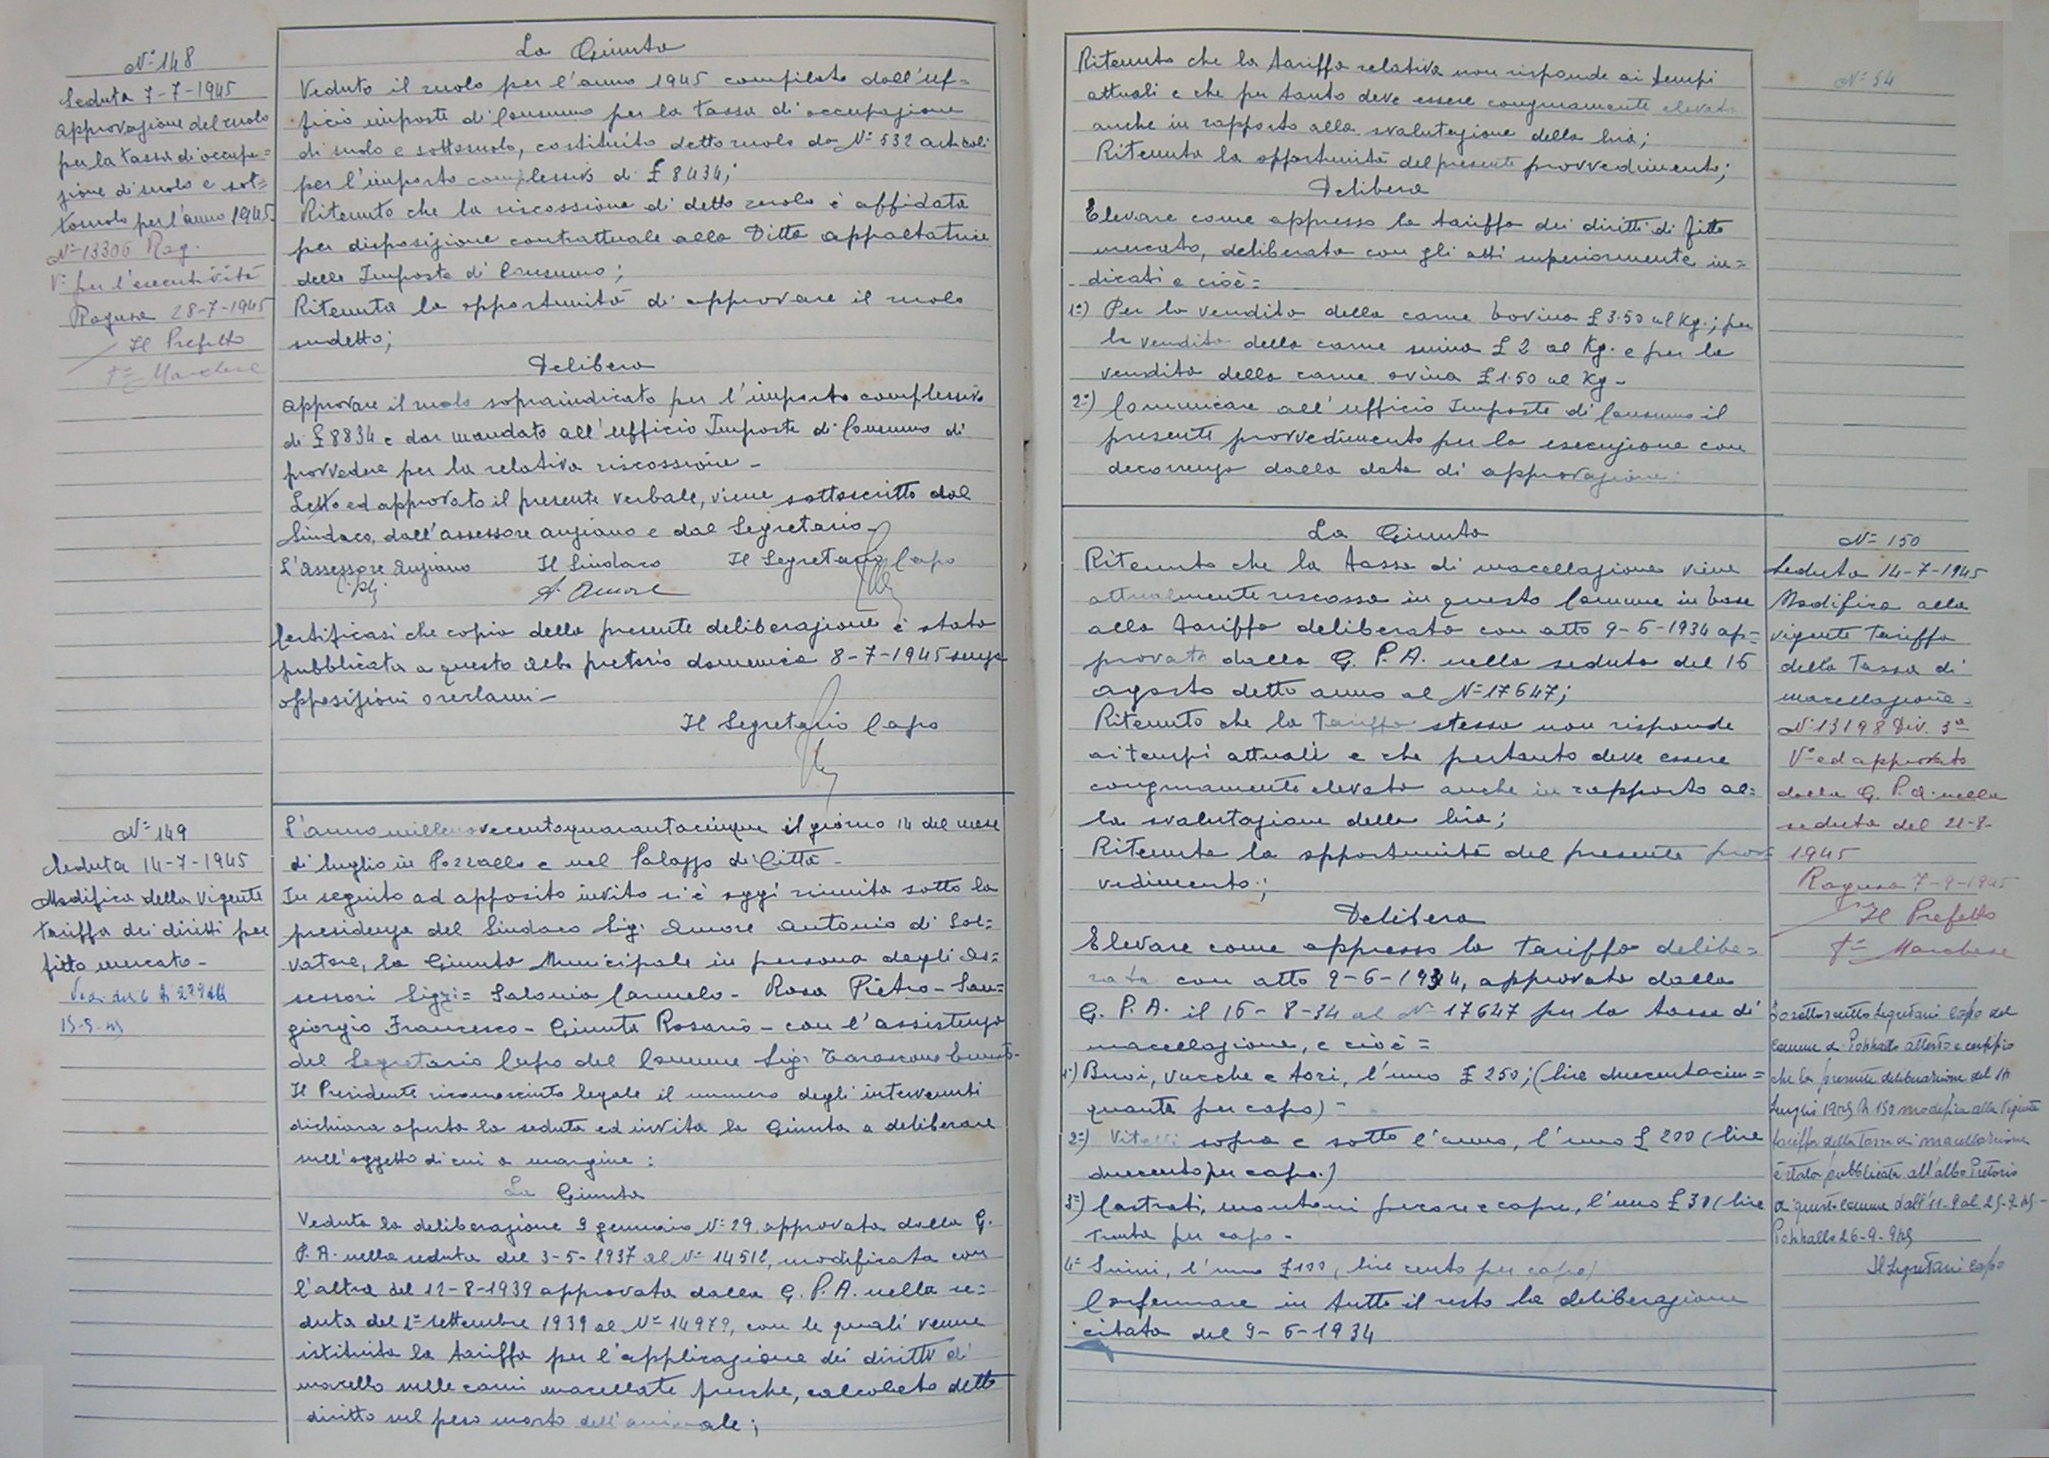 N° 148
Seduta 7-7-1945
Approvazione del ruolo
per la tassa di occupa=
zione di suolo e sot=
tosuolo per l'anno 1945
N° 13306 Rag.
V° per l'esecutività
Ragusa 28-7-1945
Il Prefetto
F° Marchese
La Giunta
Veduto il ruolo per l'anno 1945 compilato dall'uf=
ficio imposte di Consumo per la tassa di occupazione
di suolo e sottosuolo, costituito detto ruolo da N° 532 articoli
per l'importo complessivo di £ 8434;
Ritenuto che la riscossione di detto ruolo è affidata
per disposizione contrattuale alla Ditta appaltatrice
delle Imposte di Consumo;
Ritenuta la opportunità di approvare il ruolo
sudetto;
Delibera
approvare il ruolo sopraindicato per l'importo complessivo
di £ 8834 e dar mandato all'ufficio Imposte di Consumo di
provvedere per la relativa riscossione -
Letto ed approvato il presente verbale, viene sottoscritto dal
Sindaco, dall'assessore anziano e dal Segretario -
L'Assessore Anziano Il Sindaco Il Segretario Capo
A. Amore
Certificasi che copia della presente deliberazione è stata
pubblicata a questo Albo pretorio domenica 8-7-1945 senza
opposizioni o reclami -
Il Segretario Capo
N° 149
Seduta 14-7-1945
Modifica della vigente
tariffa dei diritti per
fitto mercato -
15-9-45
L'anno millenovecentoquarantacinque il giorno 14 del mese
di luglio in Pozzallo e nel Palazzo di Città -
In seguito ad apposito invito si è oggi riunita sotto la
presidenza del Sindaco Sig: Amore Antonio di Sal=
vatore, la Giunta Municipale in persona degli As=
sessori Sigg:= Salonia Carmelo - Rosa Pietro - San=
giorgio Francesco - Giunta Rosario - con l'assistenza
del Segretario Capo del Comune Sig: Tarascone
Il Presidente riconosciuto legale il numero degli intervenuti
dichiara aperta la seduta ed invita la Giunta a deliberare
sull'oggetto di cui a margine:
La Giunta
Veduta la deliberazione 9 gennaio N° 29, approvata dalla G.
P. A. nella seduta del 3-5-1937 al N° 14512, modificata con
l'altra del 12-8-1939 approvata dalla G. P. A. nella se=
duta del 1° settembre 1939 al N° 14979, con le quali venne
istituita la tariffa per l'applicazione dei diritti di
macello sulle carni macellate fresche, calcolato detto
diritto sul peso morto dell'animale;
Ritenuto che la tariffa relativa non risponde ai tempi
attuali e che per tanto deve essere congruamente elevata
anche in rapporto alla svalutazione della lira;
Ritenuta la opportunità del presente provvedimento;
Delibera
Elevare come appresso la tariffa dei diritti di fitto
mercato, deliberata con gli atti superiormente in=
dicati e cioè =
1°) Per la vendita della carne bovina £ 3.50 al Kg.; per
la vendita della carne suina £ 2 al Kg. e per la
vendita della carne ovina £ 1.50 al Kg -
2°) Comunicare all'ufficio Imposte di Consumo il
presente provvedimento per la esecuzione con
decorrenza dalla data di approvazione.
N° 54
La Giunta
Ritenuto che la tassa di macellazione viene
attualmente riscossa in questo Comune in base
alla tariffa deliberata con atto 9-6-1934 ap=
provato dalla G. P. A. nella seduta del 16
agosto detto anno al N° 17647;
Ritenuto che la tariffa stessa non risponde
ai tempi attuali e che pertanto deve essere
congruamente elevata anche in rapporto al=
la svalutazione della lira;
Ritenuta la opportunità del presente prov
vedimento;
Delibera
Elevare come appresso la tariffa delibe=
rata con atto 9-6-1934, approvata dalla
G. P. A. il 16-8-34 al N° 17647 per la tassa di
macellazione, e cioè =
1°) Buoi, vacche e tori, l'uno £ 250; (lire duecentocin=
quanta per capo) -
2°) Vitelli sopra e sotto l'anno, l'uno £ 200 (lire
duecento per capo.)
3°) Castrati, montoni pecore e capre, l'uno £ 30 (lire
trenta per capo -
4° Suini, l'uno £ 100 (lire cento per capo)
Confermare in tutto il resto la deliberazione
citata del 9-6-1934
N° 150
Seduta 14-7-1945
Modifica alla
vigente tariffa
della tassa di
macellazione -
N° 13198 Div. 3ª
V° ed approvato
dalla G. P. A. nella
seduta del 21-8-
1945
Ragusa 7-9-1945
Il Prefetto
F° Marchese
Io sottoscritto Segretario Capo del
Comune di Pozzallo attesto e certifico
che la presente deliberazione del 14
Luglio 1945 N. 150 modifica alla vigente
tariffa della tassa di macellazione
è stata pubblicata all'albo Pretorio
di questo Comune dall'11-9 al 25-9-45 -
Pozzallo 26-9-945
Il Segretario Capo